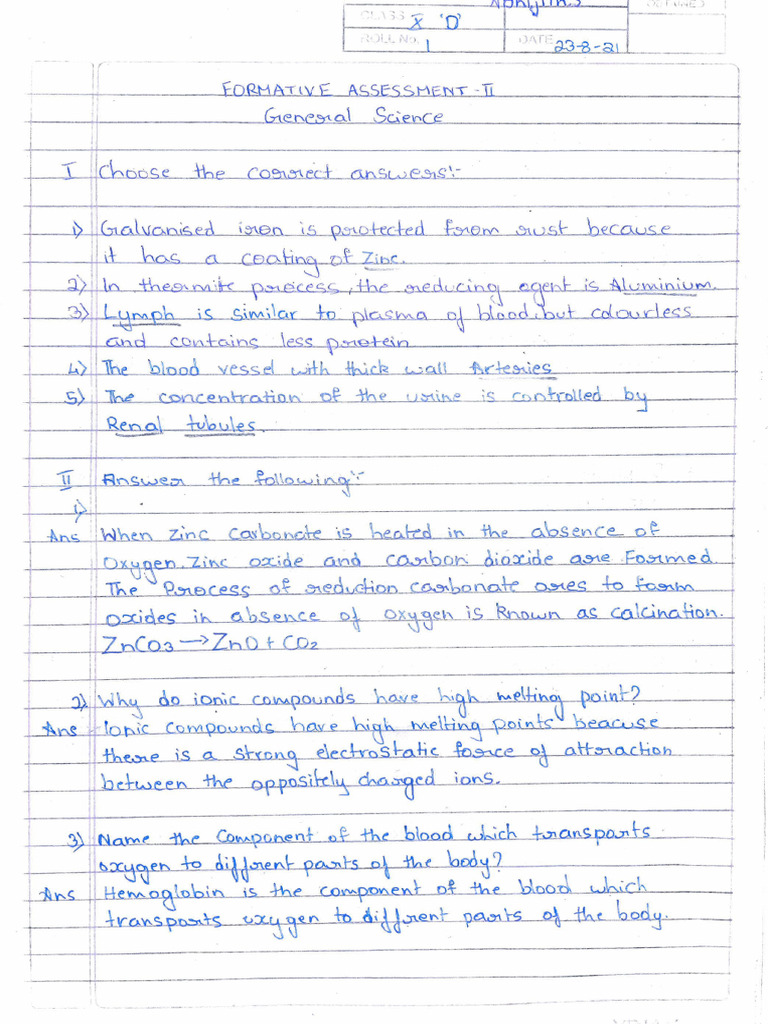 CLASS X 'D'
ROLL No. 1 DATE 23-8-21
FORMATIVE ASSESSMENT-II
General Science
I Choose the correct answers:-
1) Galvanised iron is protected from rust because
it has a coating of Zinc.
2) In thermite process, the reducing agent is Aluminium.
3) Lymph is similar to plasma of blood, but colourless
and contains less protein
4) The blood vessel with thick wall Arteries
5) The concentration of the urine is controlled by
Renal tubules.
II Answer the following:-
1)
Ans When zinc carbonate is heated in the absence of
oxygen. Zinc oxide and carbon dioxide are Formed.
The Process of reduction carbonate ores to form
oxides in absence of oxygen is known as calcination.
ZnCO3 → ZnO + CO2
2) Why do ionic compounds have high melting point?
Ans Ionic compounds have high melting points beacuse
there is a strong electrostatic force of attraction
between the oppositely charged ions.
3) Name the component of the blood which transparts
oxygen to different parts of the body?
Ans Hemoglobin is the component of the blood which
transports oxygen to different parts of the body.